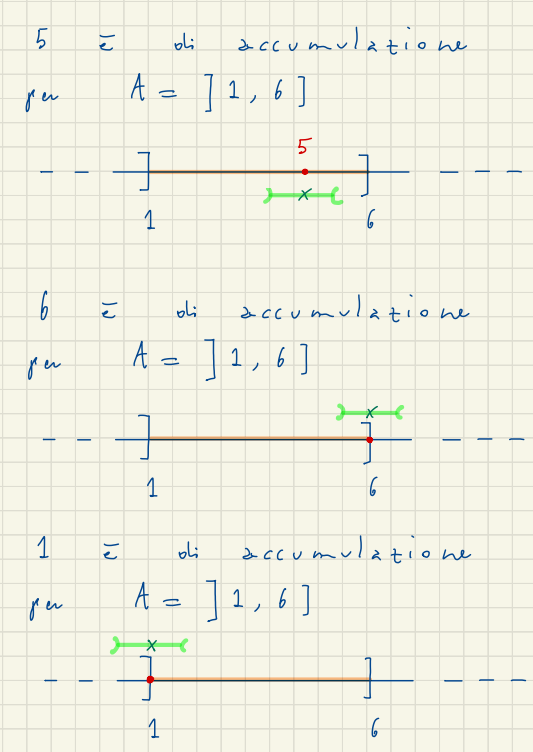 5 è di accumulazione
per A = ]1, 6]
5
1 6
6 è di accumulazione
per A = ]1, 6]
1 6
1 è di accumulazione
per A = ]1, 6]
1 6